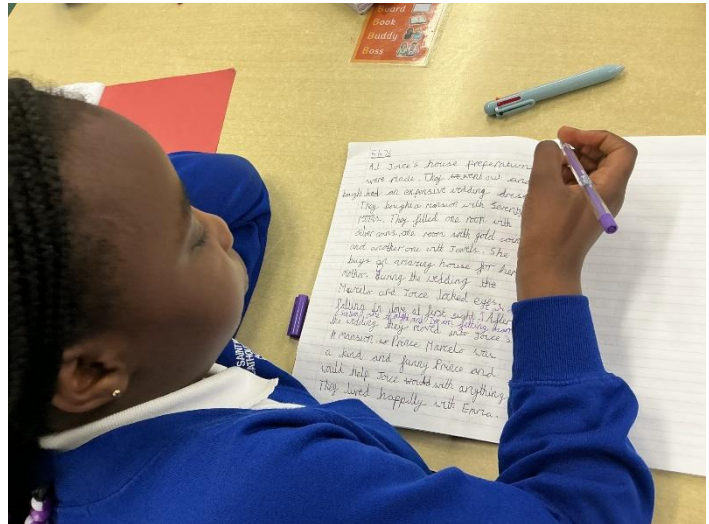 Board
Book
Buddy
Boss
At Joice's house preperation
were made. They went out and
bought an expensive wedding dress
They bought a mansion with Seventy
rooms. They filled one room with
silver coins, one room with gold coin
and another one with Jewels. She
buys an amazing house for her
mother. During the wedding the
Marcelo and Joice locked eyes,
falling in love at first sight! After
the wedding they moved into Joice's
mansion. Prince Marcelo was
a kind and funny Prince and
would help Joice would with anything.
They lived happily with Emma.
SAINT
CATHOL